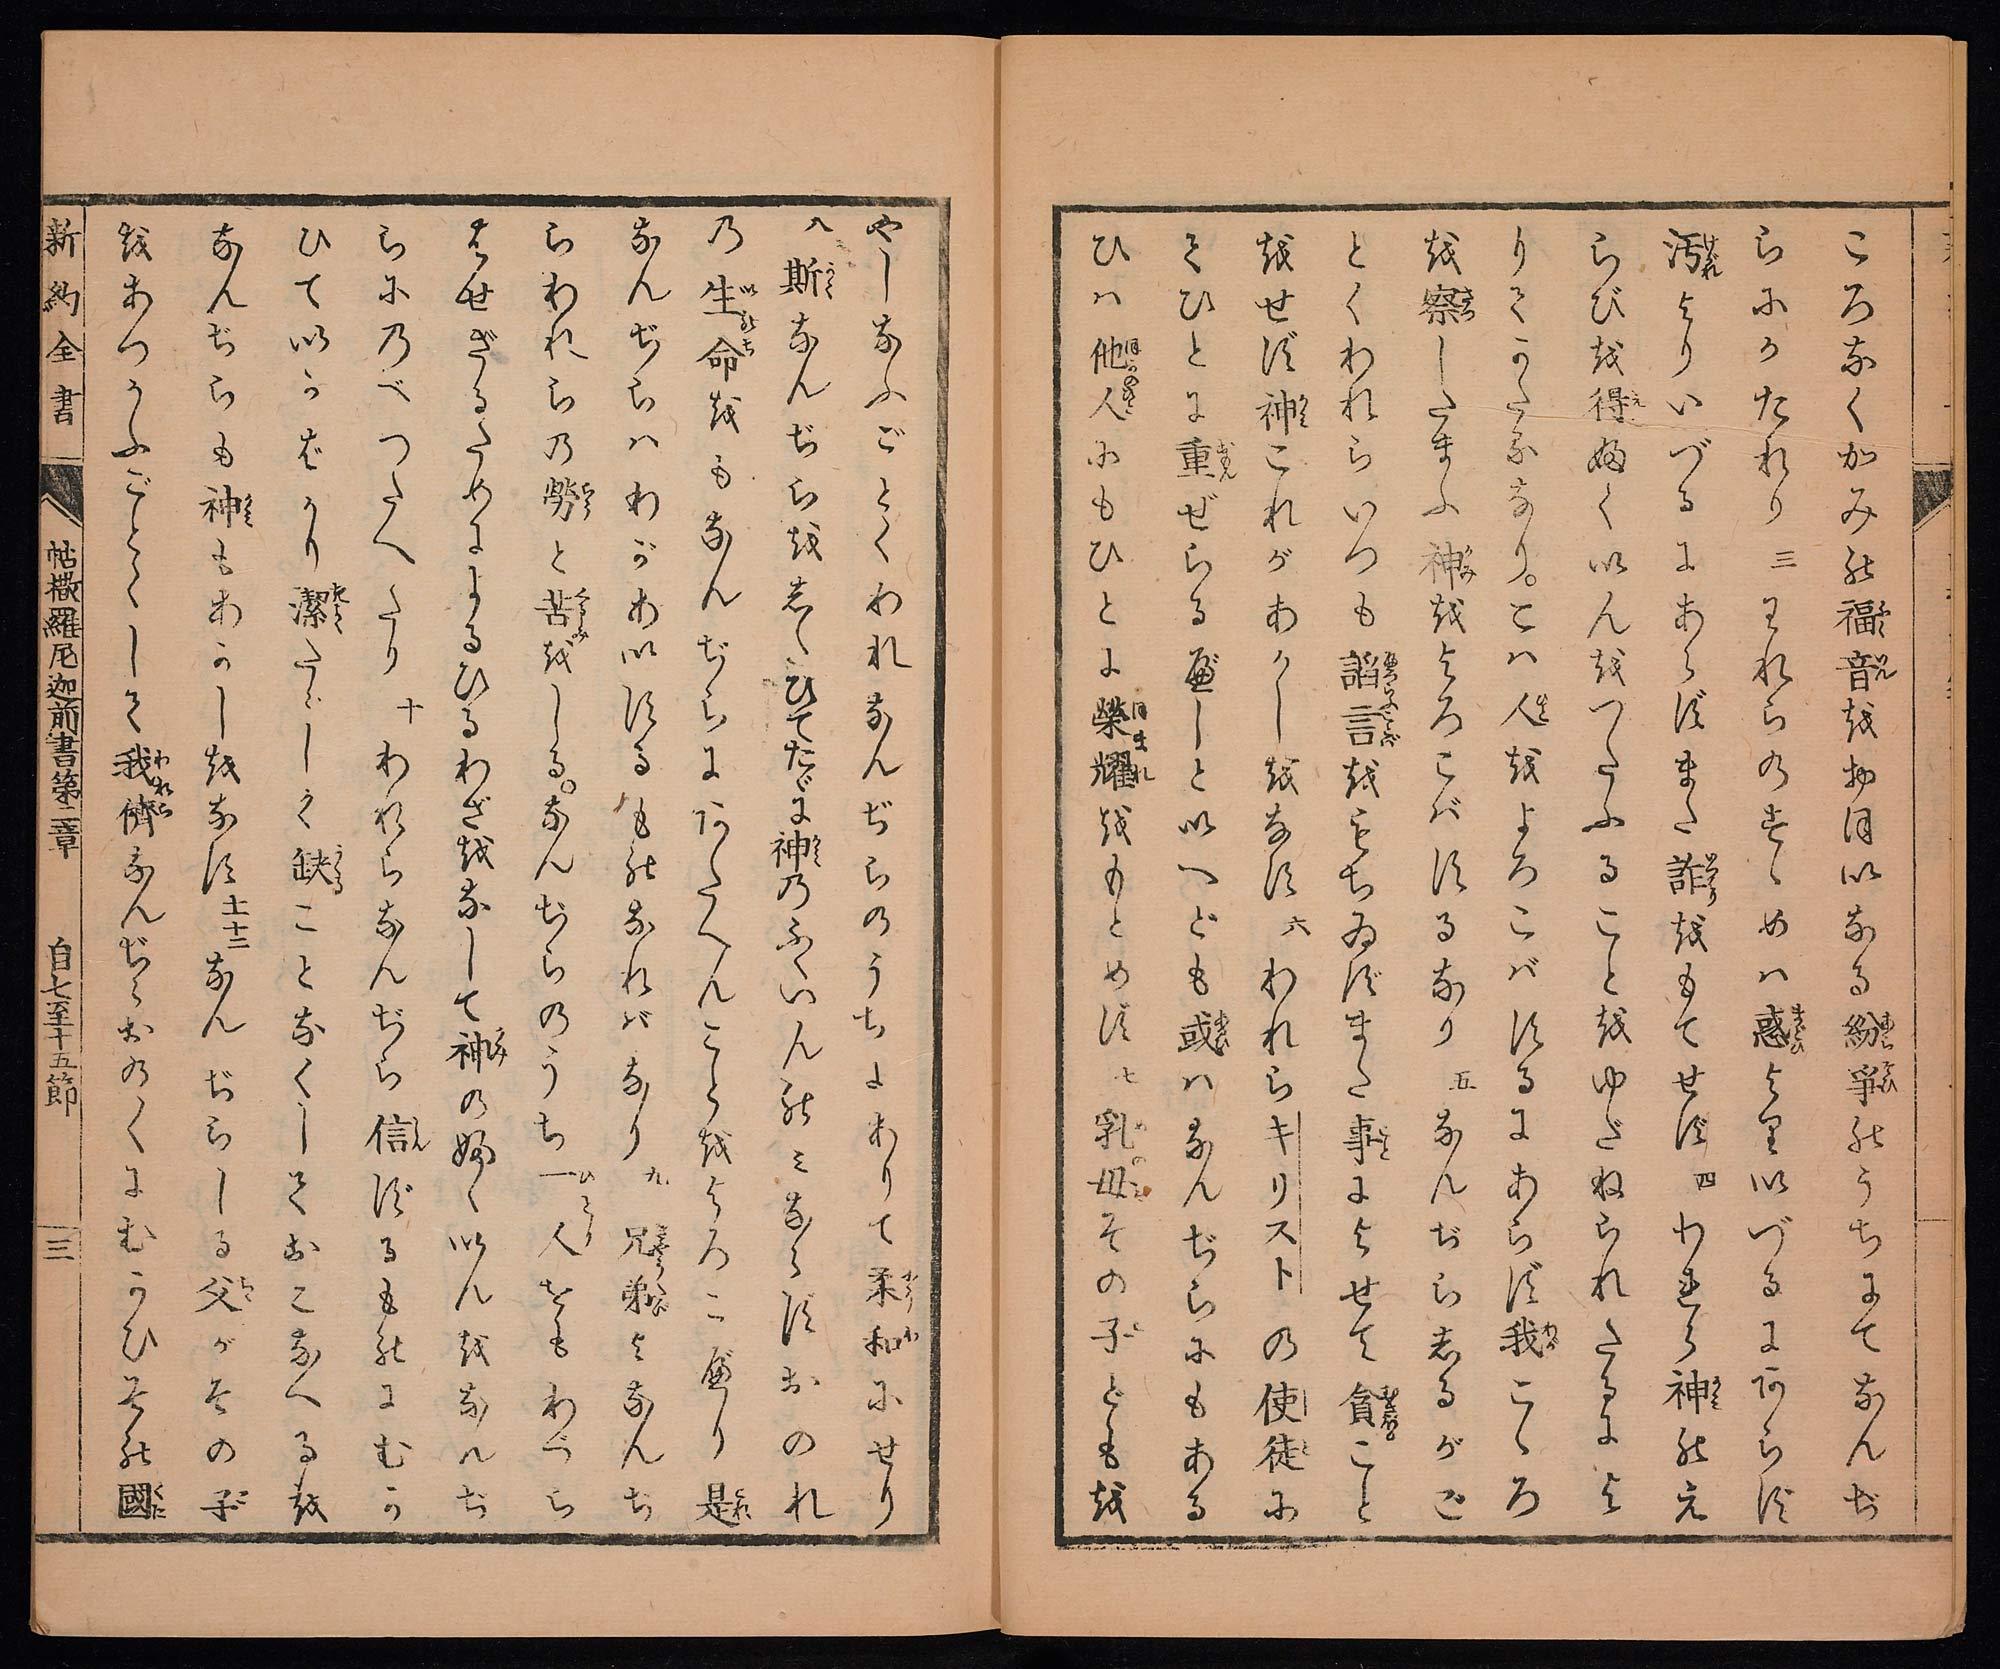 こゝろなくかみの福音をおほいなる紛爭のうちにてなんぢ
らにかたれり三われらのすゝめは惑よりいづるにあらず
汚よりいづるにあらずまた詐をもてせず四われら神のえ
らびを得ふくいんをつたふることをゆだねられたるによ
りてかたるなり。こは人をよろこばするにあらず我こゝろ
を察したまふ神をよろこばするなり五なんぢらしるがご
とくわれらいつも諂言をもちゐずまた事によせて貪こと
をせず神これがあかしをなす六われらキリストの使徒に
てひとに重ぜらるべしといへども或はなんぢらにもある
ひは他人にもひとに榮耀をもとめず七乳母その子どもを
やしなふごとくわれなんぢらのうちにありて柔和にせり
八斯なんぢらをしたひてたゞに神のふくいんのミならずおのれ
の生命もなんぢらにあたへんことをよろこべり是
なんぢらはわがあいするものなればなり九兄弟よなんぢ
らわれらの勞と苦をしる。なんぢらのうち一人をもわづら
はせざるためによるひるわざをなして神のふくいんをなんぢ
らにのべつたへたり十われらなんぢら信ずるものにむか
ひていかばかり潔たゞしく缺ことなくしておこなへるを
なんぢらも神もあかしをなす十一十二なんぢらしる父がその子
をあつかふごとくして我儕なんぢらおのくにむかひその國
新約全書
帖撒羅尼迦前書第二章
自七至十五節
三